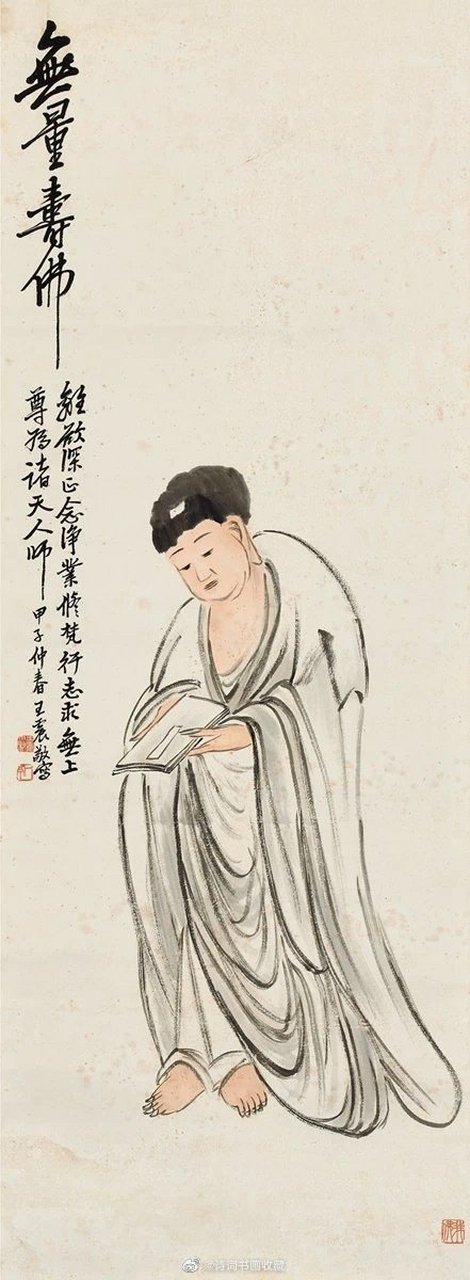 無量壽佛
離欲深正念淨業修梵行志求無上
尊為諸天人師
甲子仲春王震敬寫
@诗词书画收藏